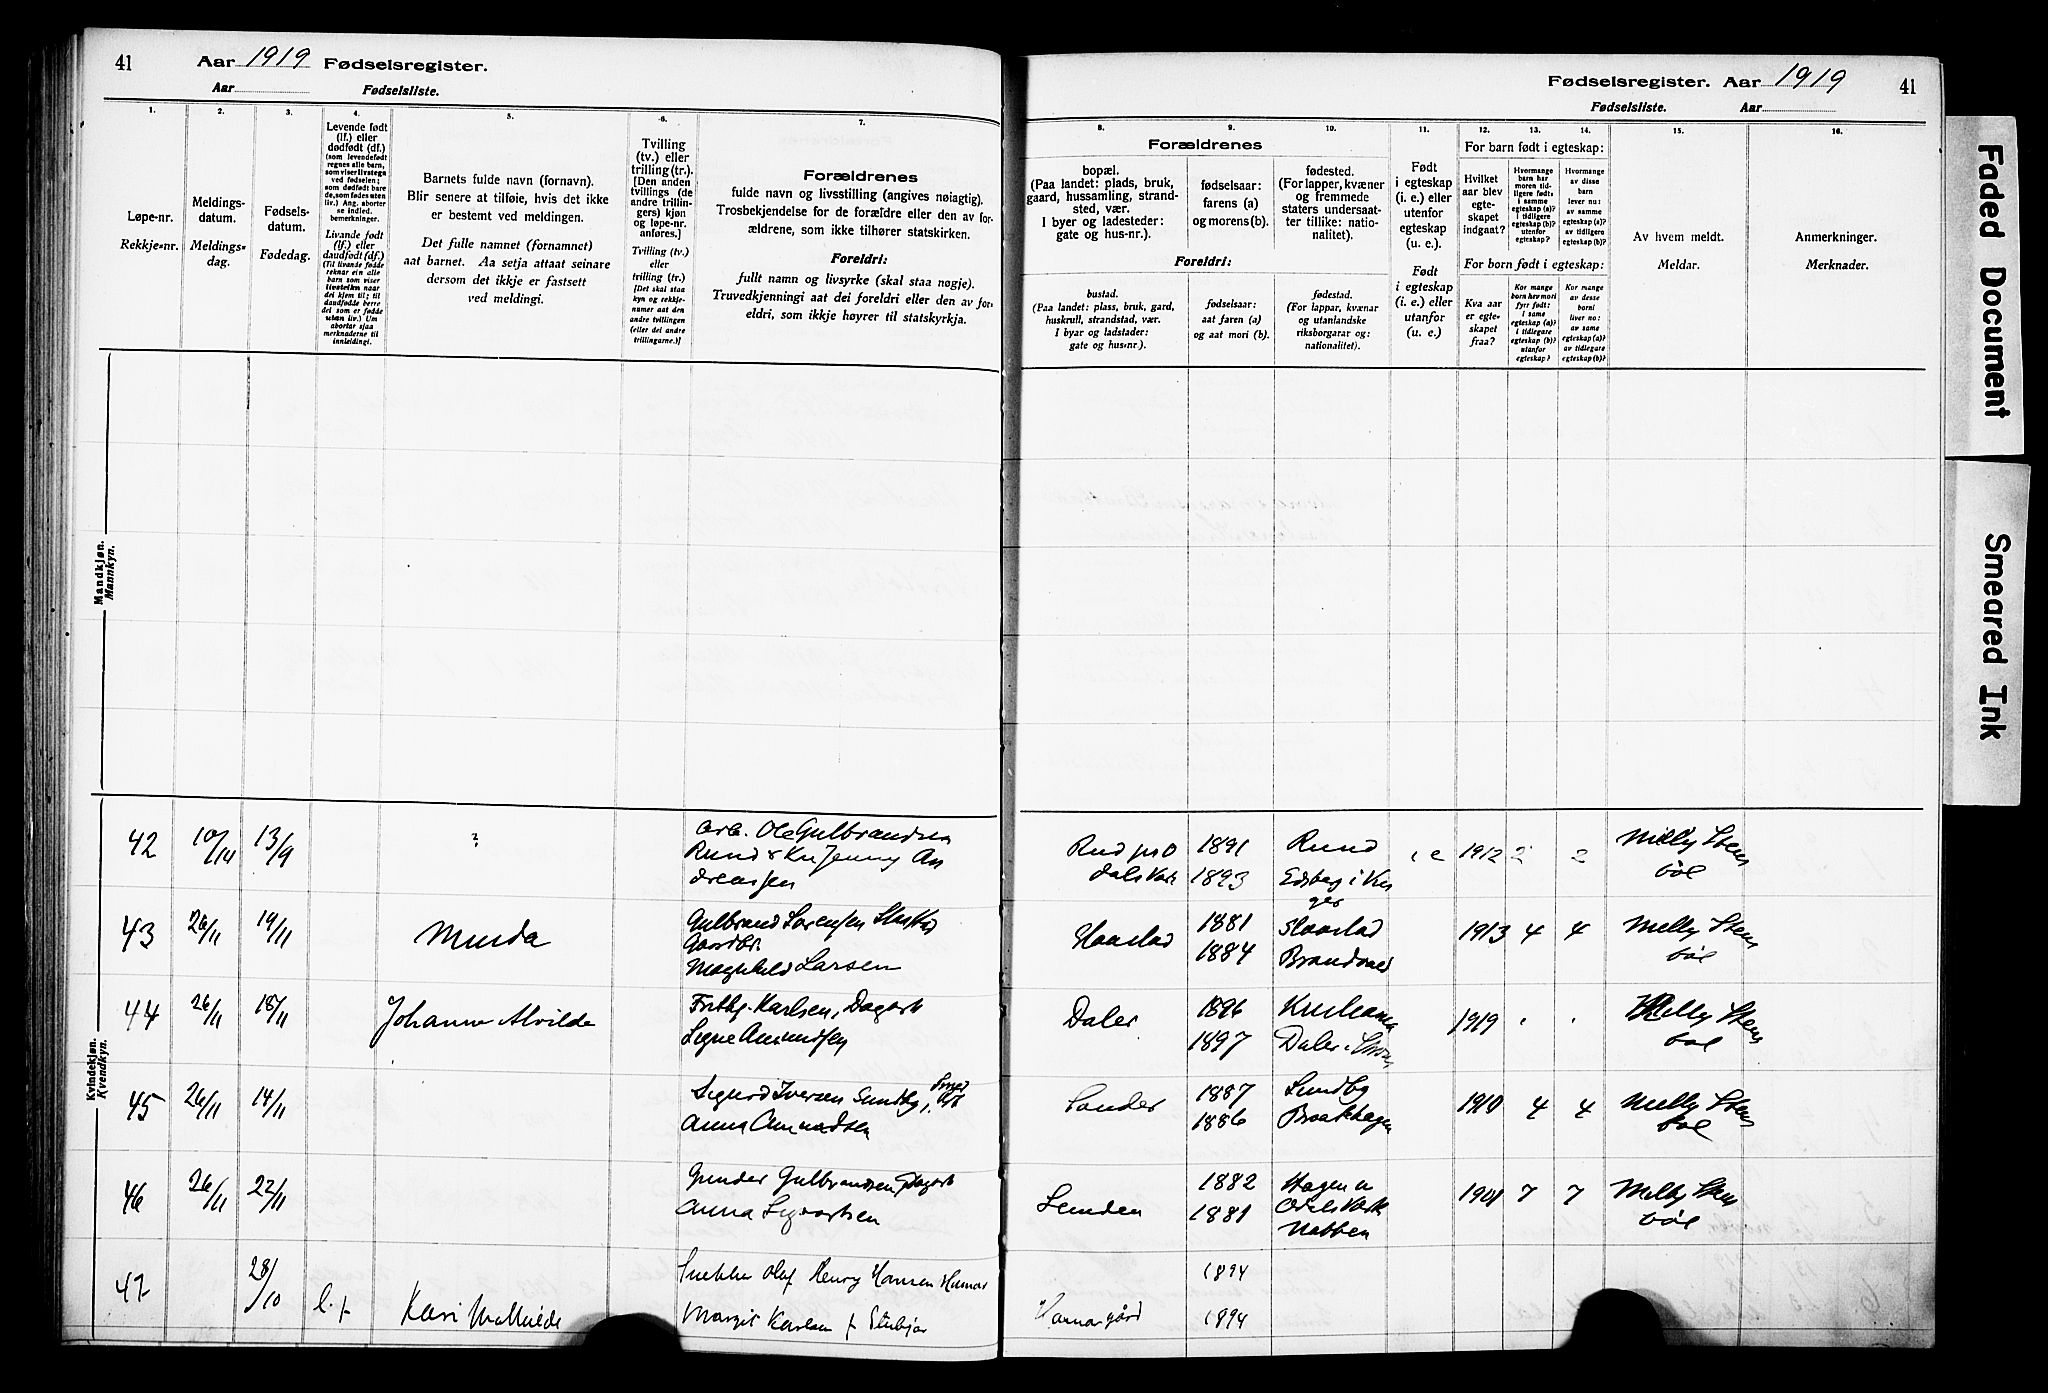 41
Aar 1919 Fødselsregister.
Aar Fødselsliste.
Fødselsregister. Aar 1919
41
Fødselsliste. Aar
1.
Løpe-nr.
Rekkje-nr.
2.
Meldings-
datum.
Meldings-
dag.
3.
Fødsels-
datum.
Fødedag.
4.
Levende født
(lf.) eller
dødfødt (df.)
(som levendefødt
regnes alle barn,
som viser livstegn
ved fødselen;
som dødfødt bare
de, som fødes uten
liv.) Ang. aborter
se indled.
bemerkninger.
Livande født
(lf.) eller
daudfødt (df.)
(Til livande fødde
reknar ein alle
born som viser
livsteikn naar
dei kjem til; til
daudfødde berre
dei som er fødde
utan liv.) Um
abortar sjaa
merknaderne til
innleidingi.
5.
Barnets fulde navn (fornavn).
Blir senere at tilføie, hvis det ikke
er bestemt ved meldingen.
Det fulle namnet (fornamnet)
aat barnet. Aa setja attaat seinare
dersom det ikkje er fastsett
ved meldingi.
6.
Tvilling
(tv.) eller
trilling (tr.).
[Den anden
tvillings (de
andre trillin-
gers) kjøn
og løpe-nr.
anføres.]
Tvilling (tv.)
eller
trilling (tr.)
[Det skal staa
kyn og rekkje-
numer aat den
andre tvillingen
(eller dei andre
trillingarne.)]
7.
Forældrenes
fulde navn og livsstilling (angives nøiagtig).
Trosbekjendelse for de forældre eller den av for-
ældrene, som ikke tilhører statskirken.
Foreldri:
fullt namn og livsyrke (skal staa nøgje).
Truvedkjenningi aat dei foreldri eller den av for-
eldri, som ikkje høyrer til statskyrkja.
8.
Forældrenes
bopæl.
(Paa landet: plads, bruk,
gaard, hussamling, strand-
sted, vær.
I byer og ladesteder:
gate og hus-nr.).
Foreldri:
bustad.
(Paa landet: plass, bruk, gard,
huskrull, strandstad, vær.
I byar og ladstader:
gate og hus-nr.).
9.
fødselsaar:
farens (a)
og morens (b).
fødselsaar:
aat faren (a)
og aat mori (b).
10.
fødested.
(For lapper, kvæner
og fremmede
staters undersaat-
ter tillike: natio-
nalitet).
fødestad.
(For lappar, kvænar
og utanlandske
riksborgarar og:
nationalitet).
11.
Født
i egteskap
(i. e.) eller
utenfor
egteskap
(u. e.).
Født
i egteskap
(i. e.) eller
utanfor
(u. e.).
For barn født i egteskap:
12.
Hvilket
aar blev
egte-
skapet
indgaat?
13.
Hvormange
barn har
moren tid-
ligere født:
i samme
egteskap (a)?
i tidligere
egteskap (b)?
utenfor
egteskap?
14.
Hvormange
av disse
barn
lever nu:
av samme
egteskap (a)?
av tidligere
egteskap (b)?
For born født i egteskap:
Kva aar
er egte-
skapet
fraa?
Kor mange
born hev mori
fyrr født:
i same
egteskap (a)?
i tidlegare
egteskap (b)?
utanfor
egteskap?
Kor mange
av desse
borni
liver no:
av same
egteskap (a)?
av tidlegare
egteskap (b)?
15.
Av hvem meldt.
Meldar.
16.
Anmerkninger.
Merknader.
Mandkjøn.
Mannkyn.
Kvindekjøn.
Kvendkyn.
42 10/14 13/9 ?
arb. Ole Gulbrandsen
Rund & Jenny An
dreassen
1891 Rund
1893
i e 1912 2 2
Melby Stens
bøl
43 26/11 19/11 Minda
Gulbrand Sørensen
Gaardbr.
Magnhild Larsen
Haastad
1881 Haastad
1884 Brandvael
1913 4 4
Melby Stens
bøl
44 26/11 18/11 Johanne Alvilde
Frithj. Karlsen, Dagarb
Signe Amundsen
Daler
1896
1897 Daler i
1919
Melby Stens
bøl
45 26/11 14/11
Sigurd Iversen Sundby, Smed
Anna Amundsen
Sander
1887 Sundby
1886 Braathagen
1910 4 4
Melby Stens
bøl
46 26/11 22/11
Gunder Gulbrandsen, Dagarb
Anna Sigvartsen
Lunden
1882 Hagen
1881 Nabben
1901 7 7
Melby Stens
bøl
47 28/10 l. f Kari Mathilde
Snekker Olaf Henry Hansen
Margit Karlsen f
Hamargård
1894
1894
Faded Document
Smeared Ink